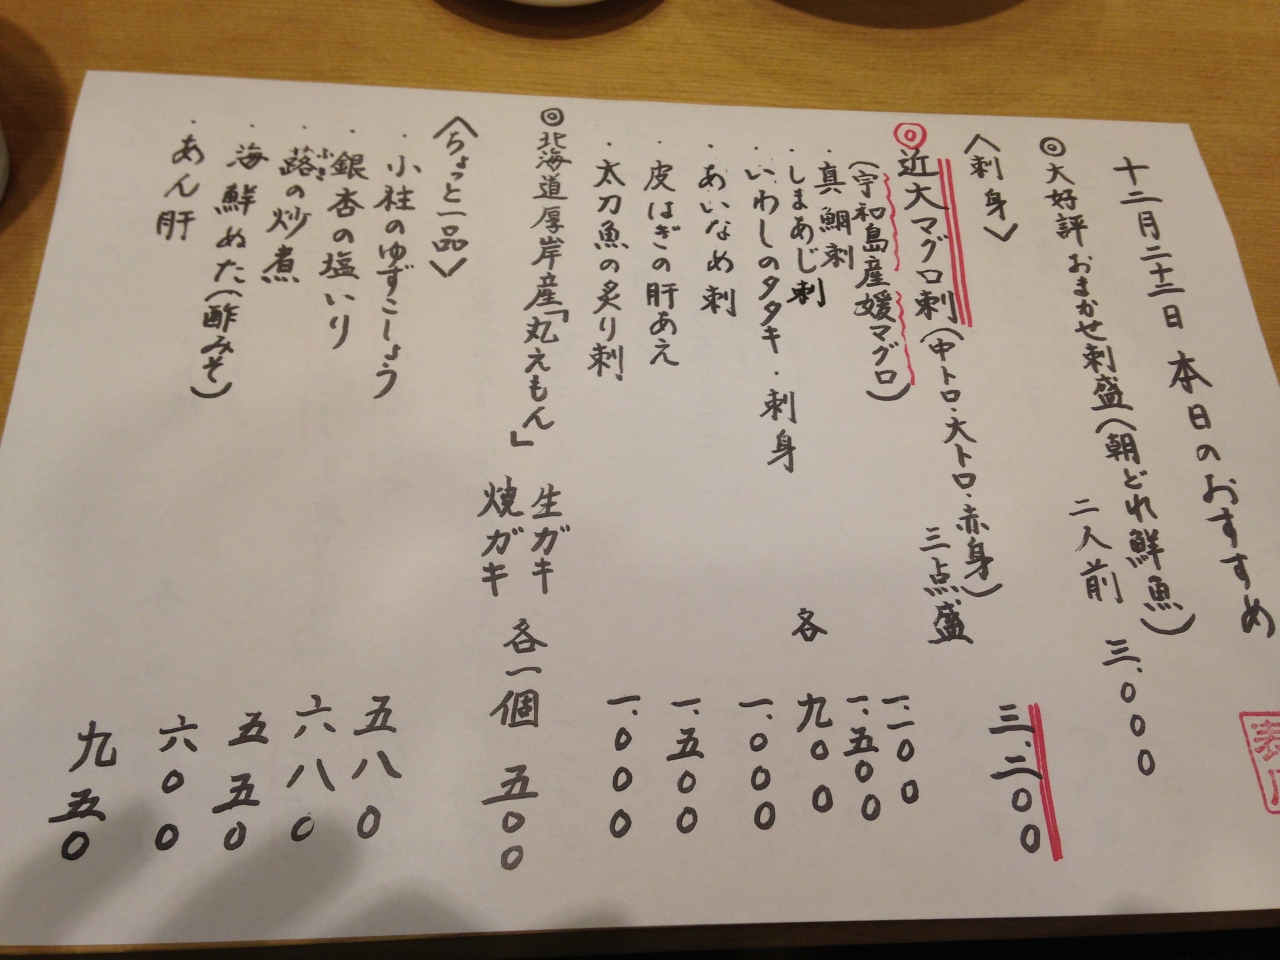 十二月二十二日 本日のおすすめ
◎大好評おまかせ刺盛(朝どれ鮮魚)
二人前 三、〇〇〇
〈刺身〉
◎近大マグロ刺(中トロ・大トロ・赤身)
三点盛 三、二〇〇
(宇和島産媛マグロ)
・真鯛刺 一、一〇〇
・しまあじ刺 一、五〇〇
・いわしのタタキ・刺身 各 九〇〇
・あいなめ刺 一、〇〇〇
・皮はぎの肝あえ 一、五〇〇
・太刀魚の炙り刺 一、〇〇〇
◎北海道厚岸産「丸えもん」 生ガキ
焼ガキ 各一個 五〇〇
〈ちょっと一品〉
・小柱のゆずこしょう 五八〇
・銀杏の塩いり 六八〇
・蕗の炒煮 五五〇
ふき
・海鮮ぬた(酢みそ) 六〇〇
・あん肝 九五〇